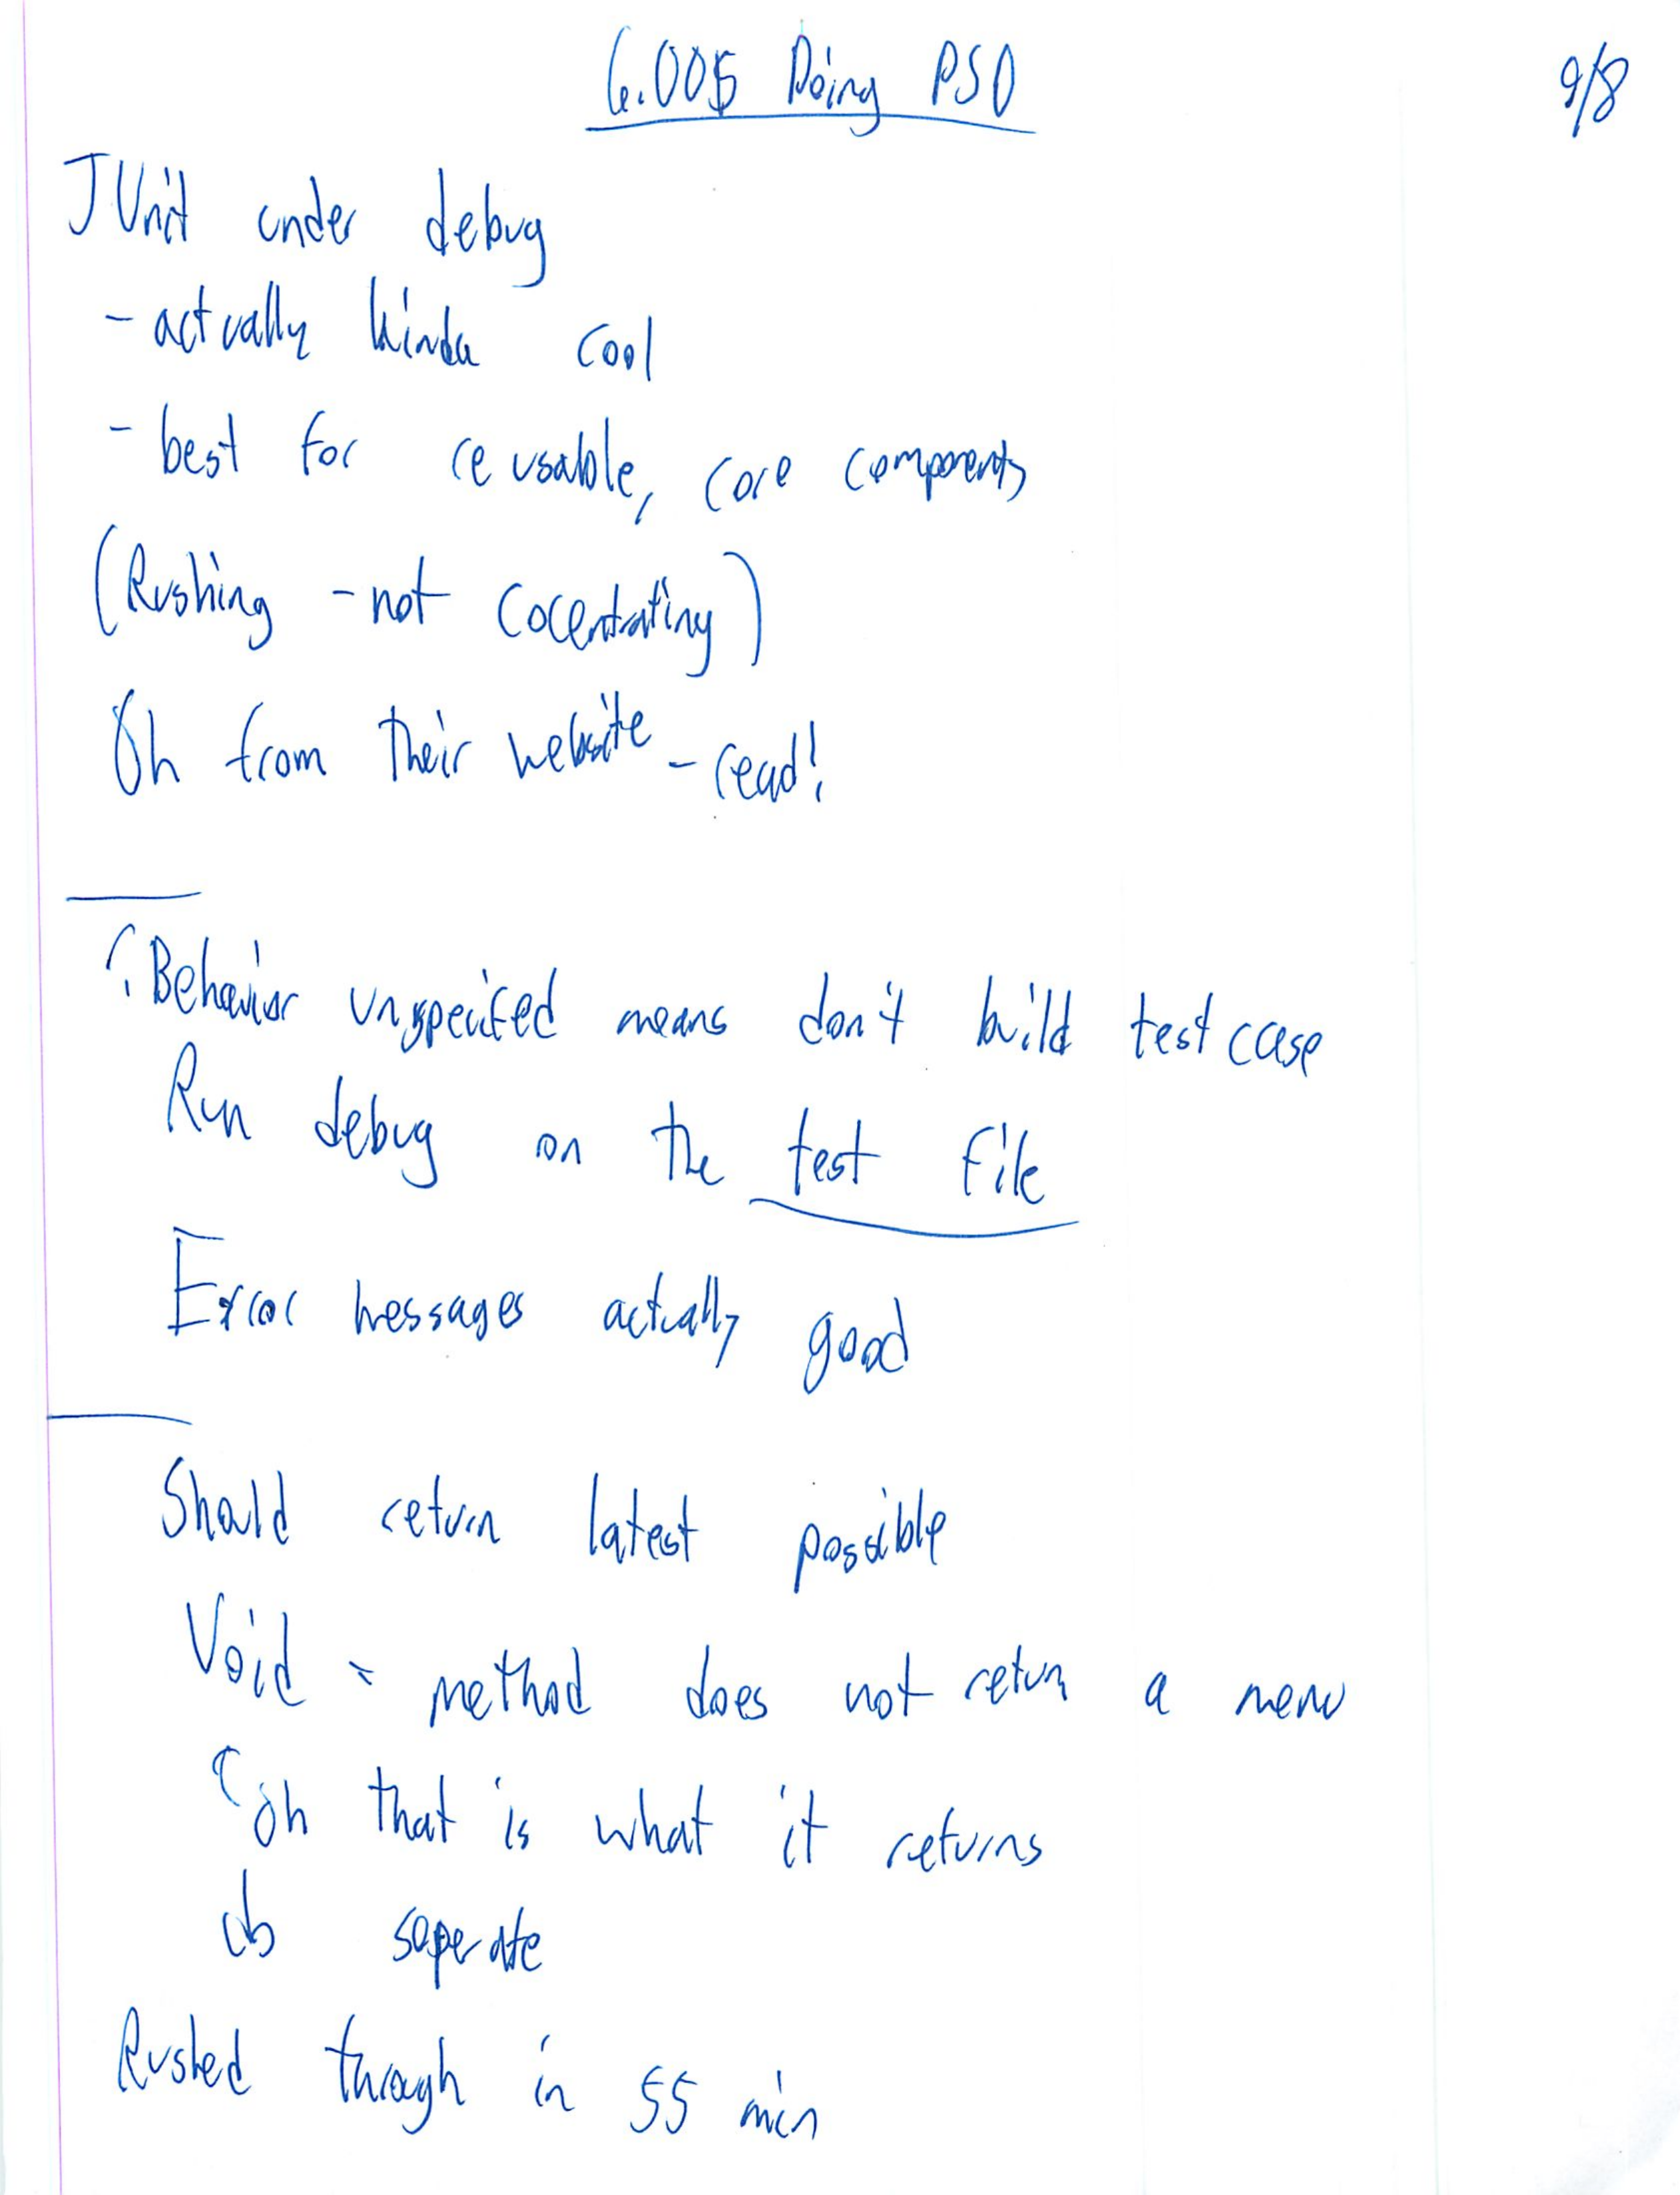 6.005 Doing PS0
9/8
JUnit under debug
- actually kinda cool
- best for reusable, core components
(Rushing - not cocentrating)
Oh from their website - read!
Behavior unspecifed means don't build test case
Run debug on the test file
Error messages actually good
Should return latest possible
Void = method does not return a
Oh that is what it returns
do seperate
Rushed through in 55 min